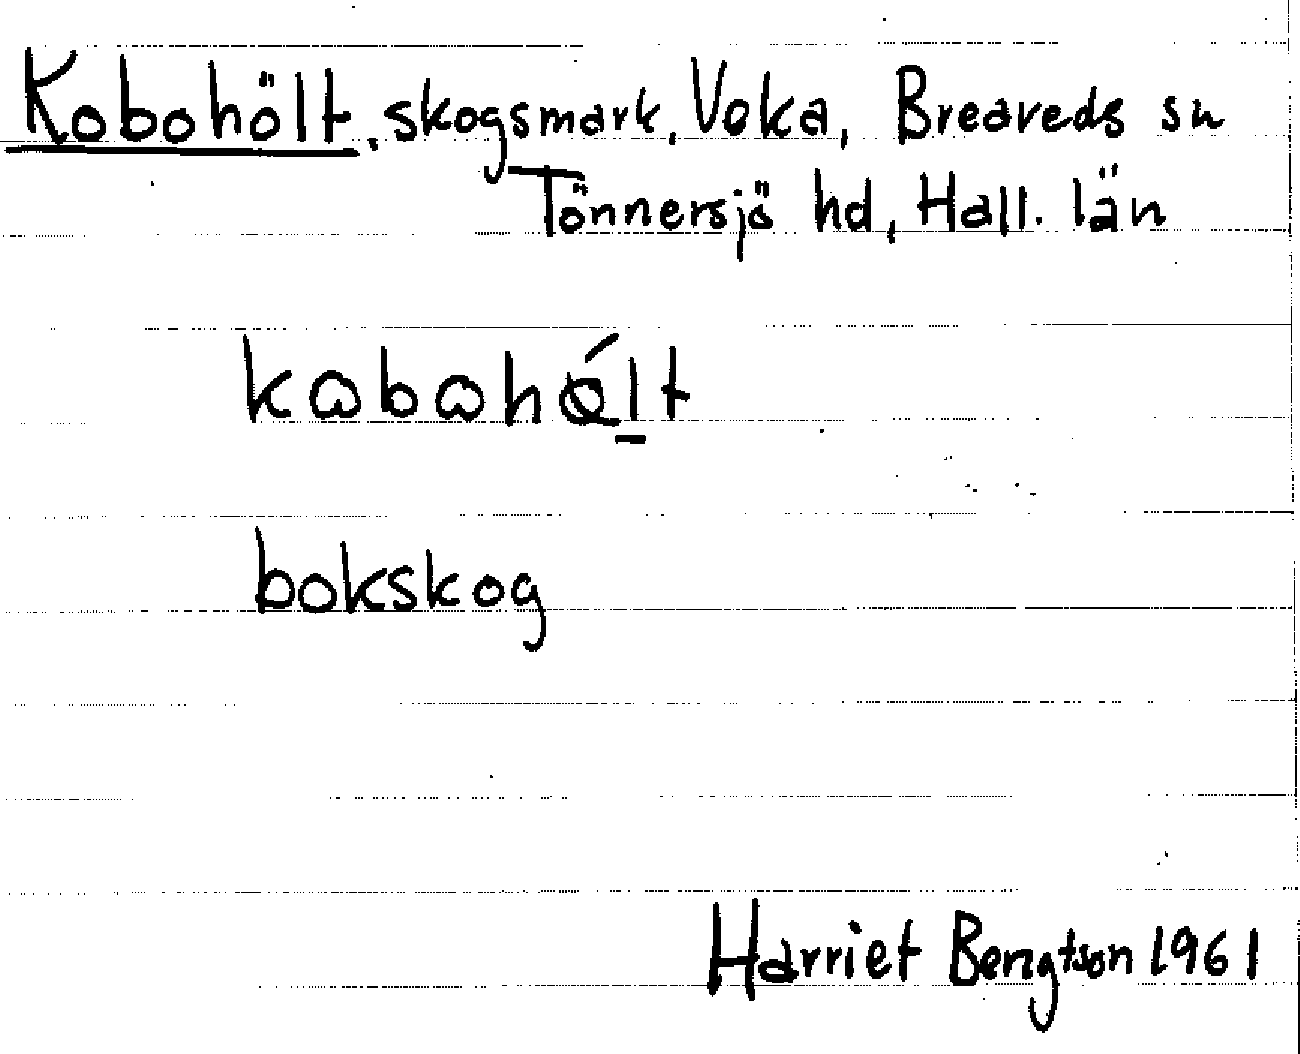 Kobohölt, skogsmark, Voka, Breareds sn
Tönnersjö hd, Hall. län
kobohǿlt
bokskog
Harriet Bengtson 1961